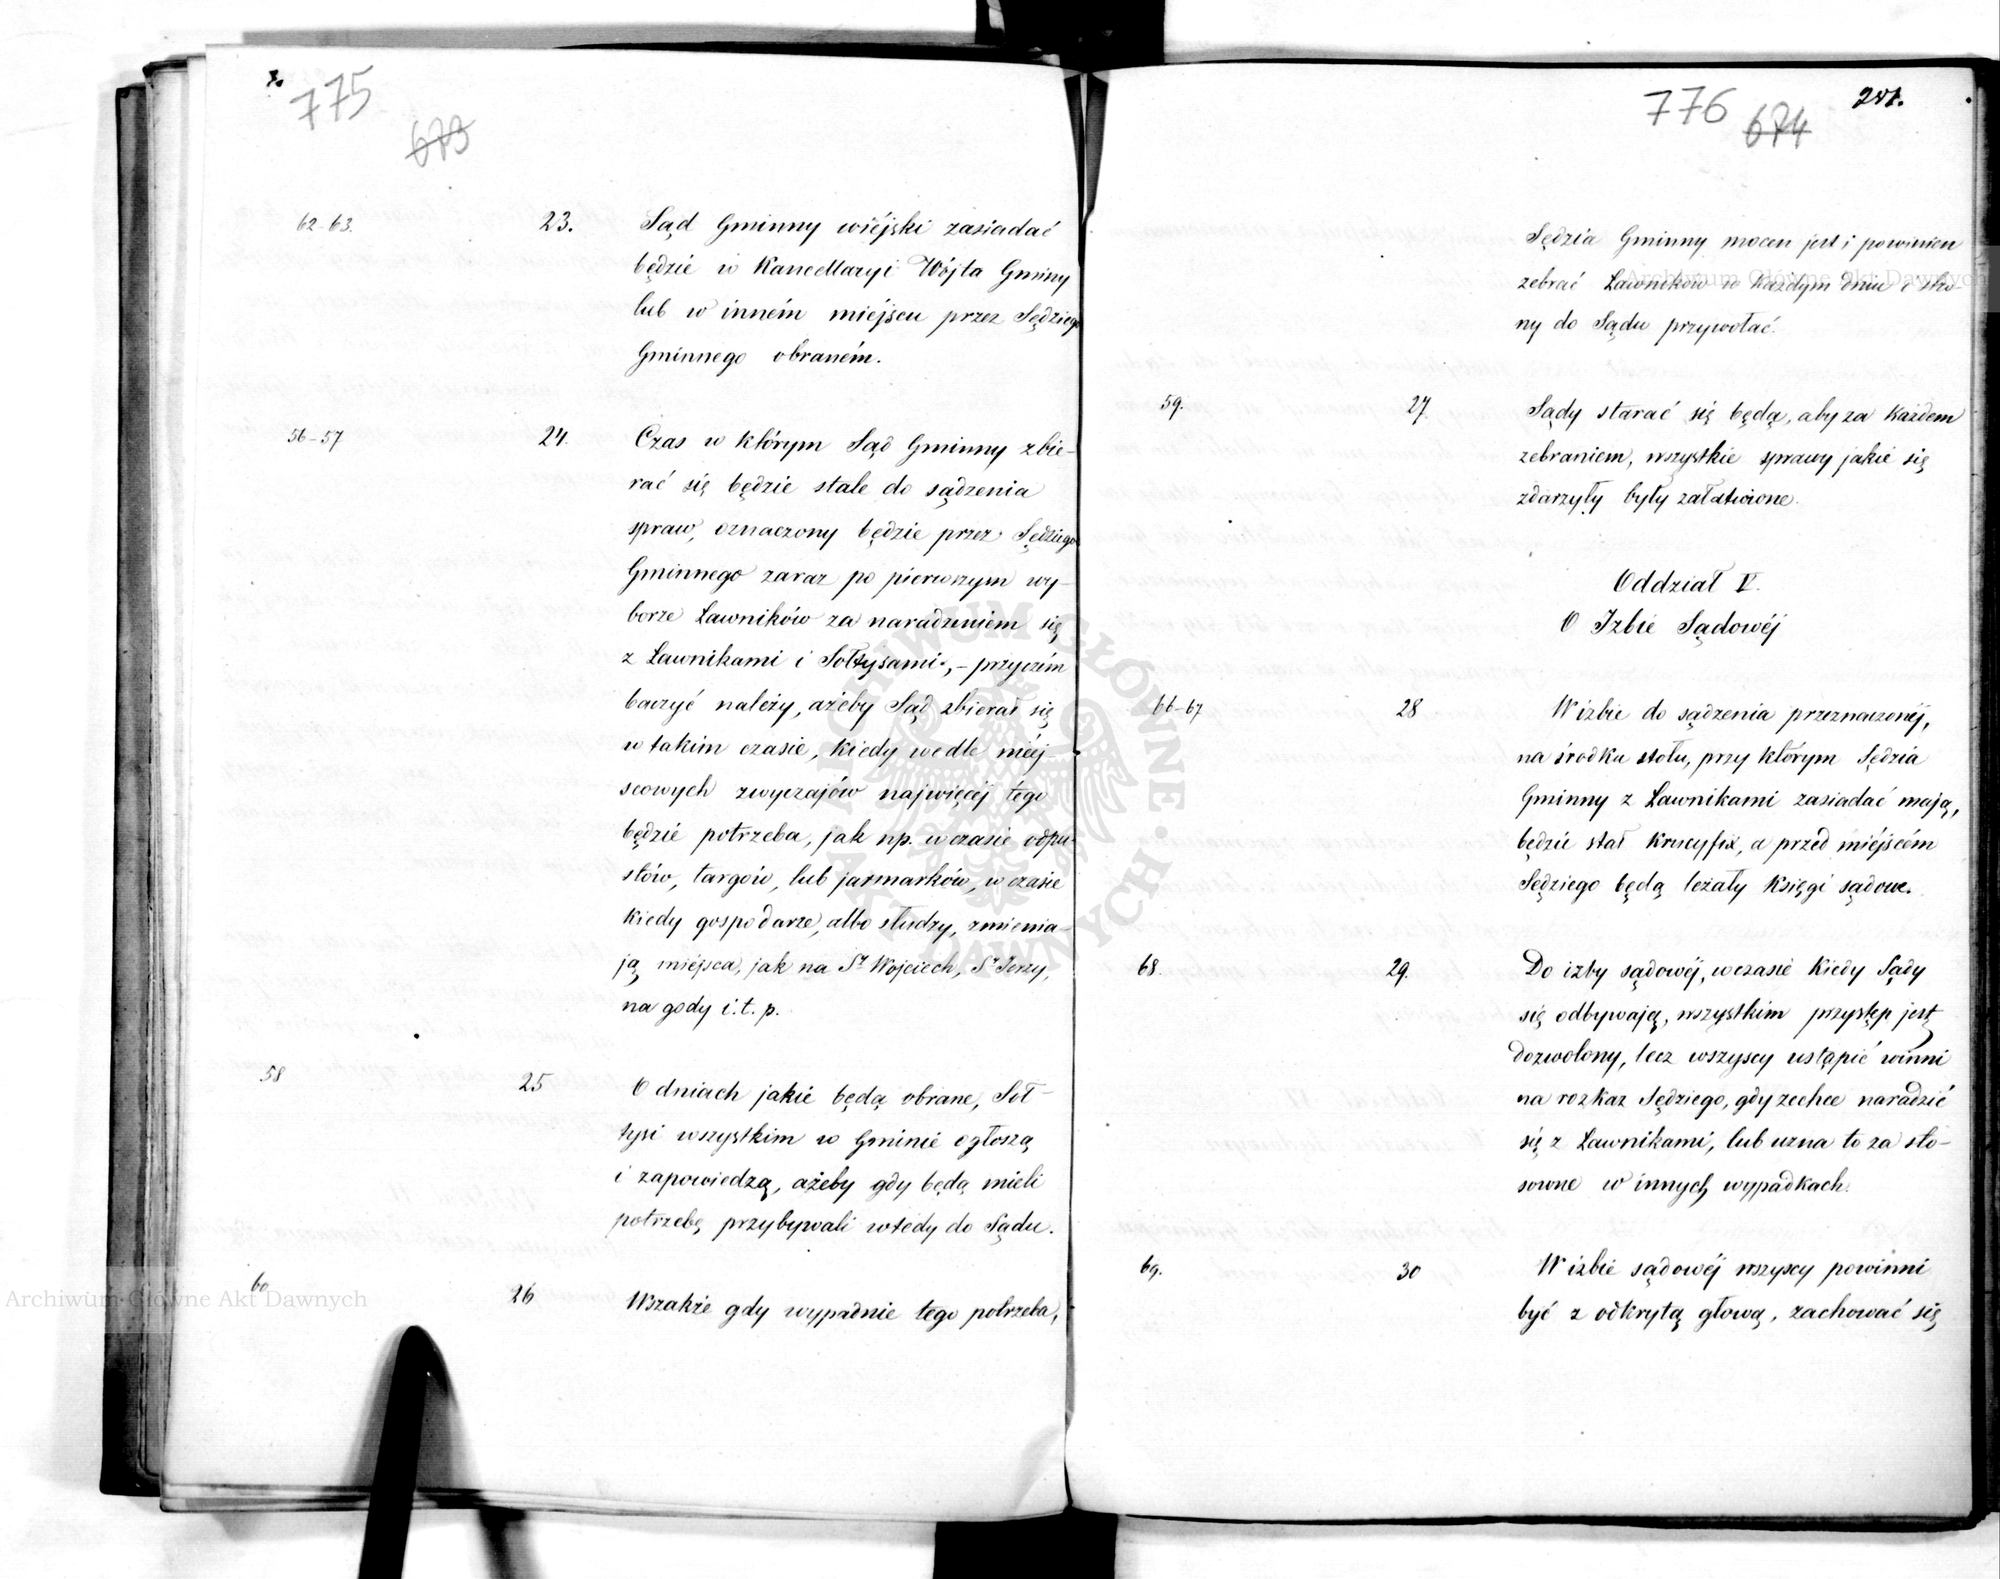 775
673
62-63.
23.
Sąd Gminny wiéjski zasiadać
będzie w Kancellaryi Wójta Gminy
lub w inném miéjscu przez Sędziego
Gminnego obraném.
56-57
24.
Czas w którym Sąd Gminny zbie-
rać się będzie stale do sądzenia
spraw, oznaczony będzie przez Sędziego
Gminnego zaraz po pierwszym wy-
borze Ławników za naradzeniem się
z Ławnikami i Sołtysami, - przyczém
baczyć należy, ażeby Sąd zbierał się
w takim czasie, kiedy wedle miéj-
scowych zwyczajów najwięcéj tego
będzie potrzeba, jak np. w czasie odpu-
stów, targów, lub jarmarków, w czasie
kiedy gospodarze, albo słudzy, zmienia-
ją miéjsca, jak na Sr. Wojciech, Sr. Jerzy,
na gody i.t.p.
58
25
O dniach jakie będą obrane, Soł-
tysi wszystkim w Gminie ogłoszą
i zapowiedzą, ażeby gdy będą mieli
potrzebę przybywali wtedy do Sądu.
60
26
Wszakże gdy wypadnie tego potrzeba,
776
674
251.
Sędzia Gminny mocen jest i powinien
zebrać Ławników w każdym dniu i stro-
ny do Sądu przywołać.
59.
27.
Sądy starać się będą, aby za każdem
zebraniem, wszystkie sprawy jakie się
zdarzyły były załatwione.
Oddział V.
O Izbie Sądowéj
66-67
28
W izbie do sądzenia przeznaczonéj,
na środku stołu, przy którym Sędzia
Gminny z Ławnikami zasiadać mają,
będzie stał Krucyfix, a przed miéjscém
Sędziego będą leżały Księgi sądowe.
68.
29.
Do izby sądowéj, w czasie kiedy Sądy
się odbywają, wszystkim przystęp jest
dozwolony, lecz wszyscy ustąpić winni
na rozkaz Sędziego, gdy zechce naradzić
się z Ławnikami, lub uzna to za sto-
sowne w innych wypadkach.
69.
30
W izbie sądowéj wszyscy powinni
być z odkrytą głową, zachować się
Archiwum Główne Akt Dawnych
Archiwum Główne Akt Dawnych
ARCHIWUM GŁÓWNE AKT DAWNYCH